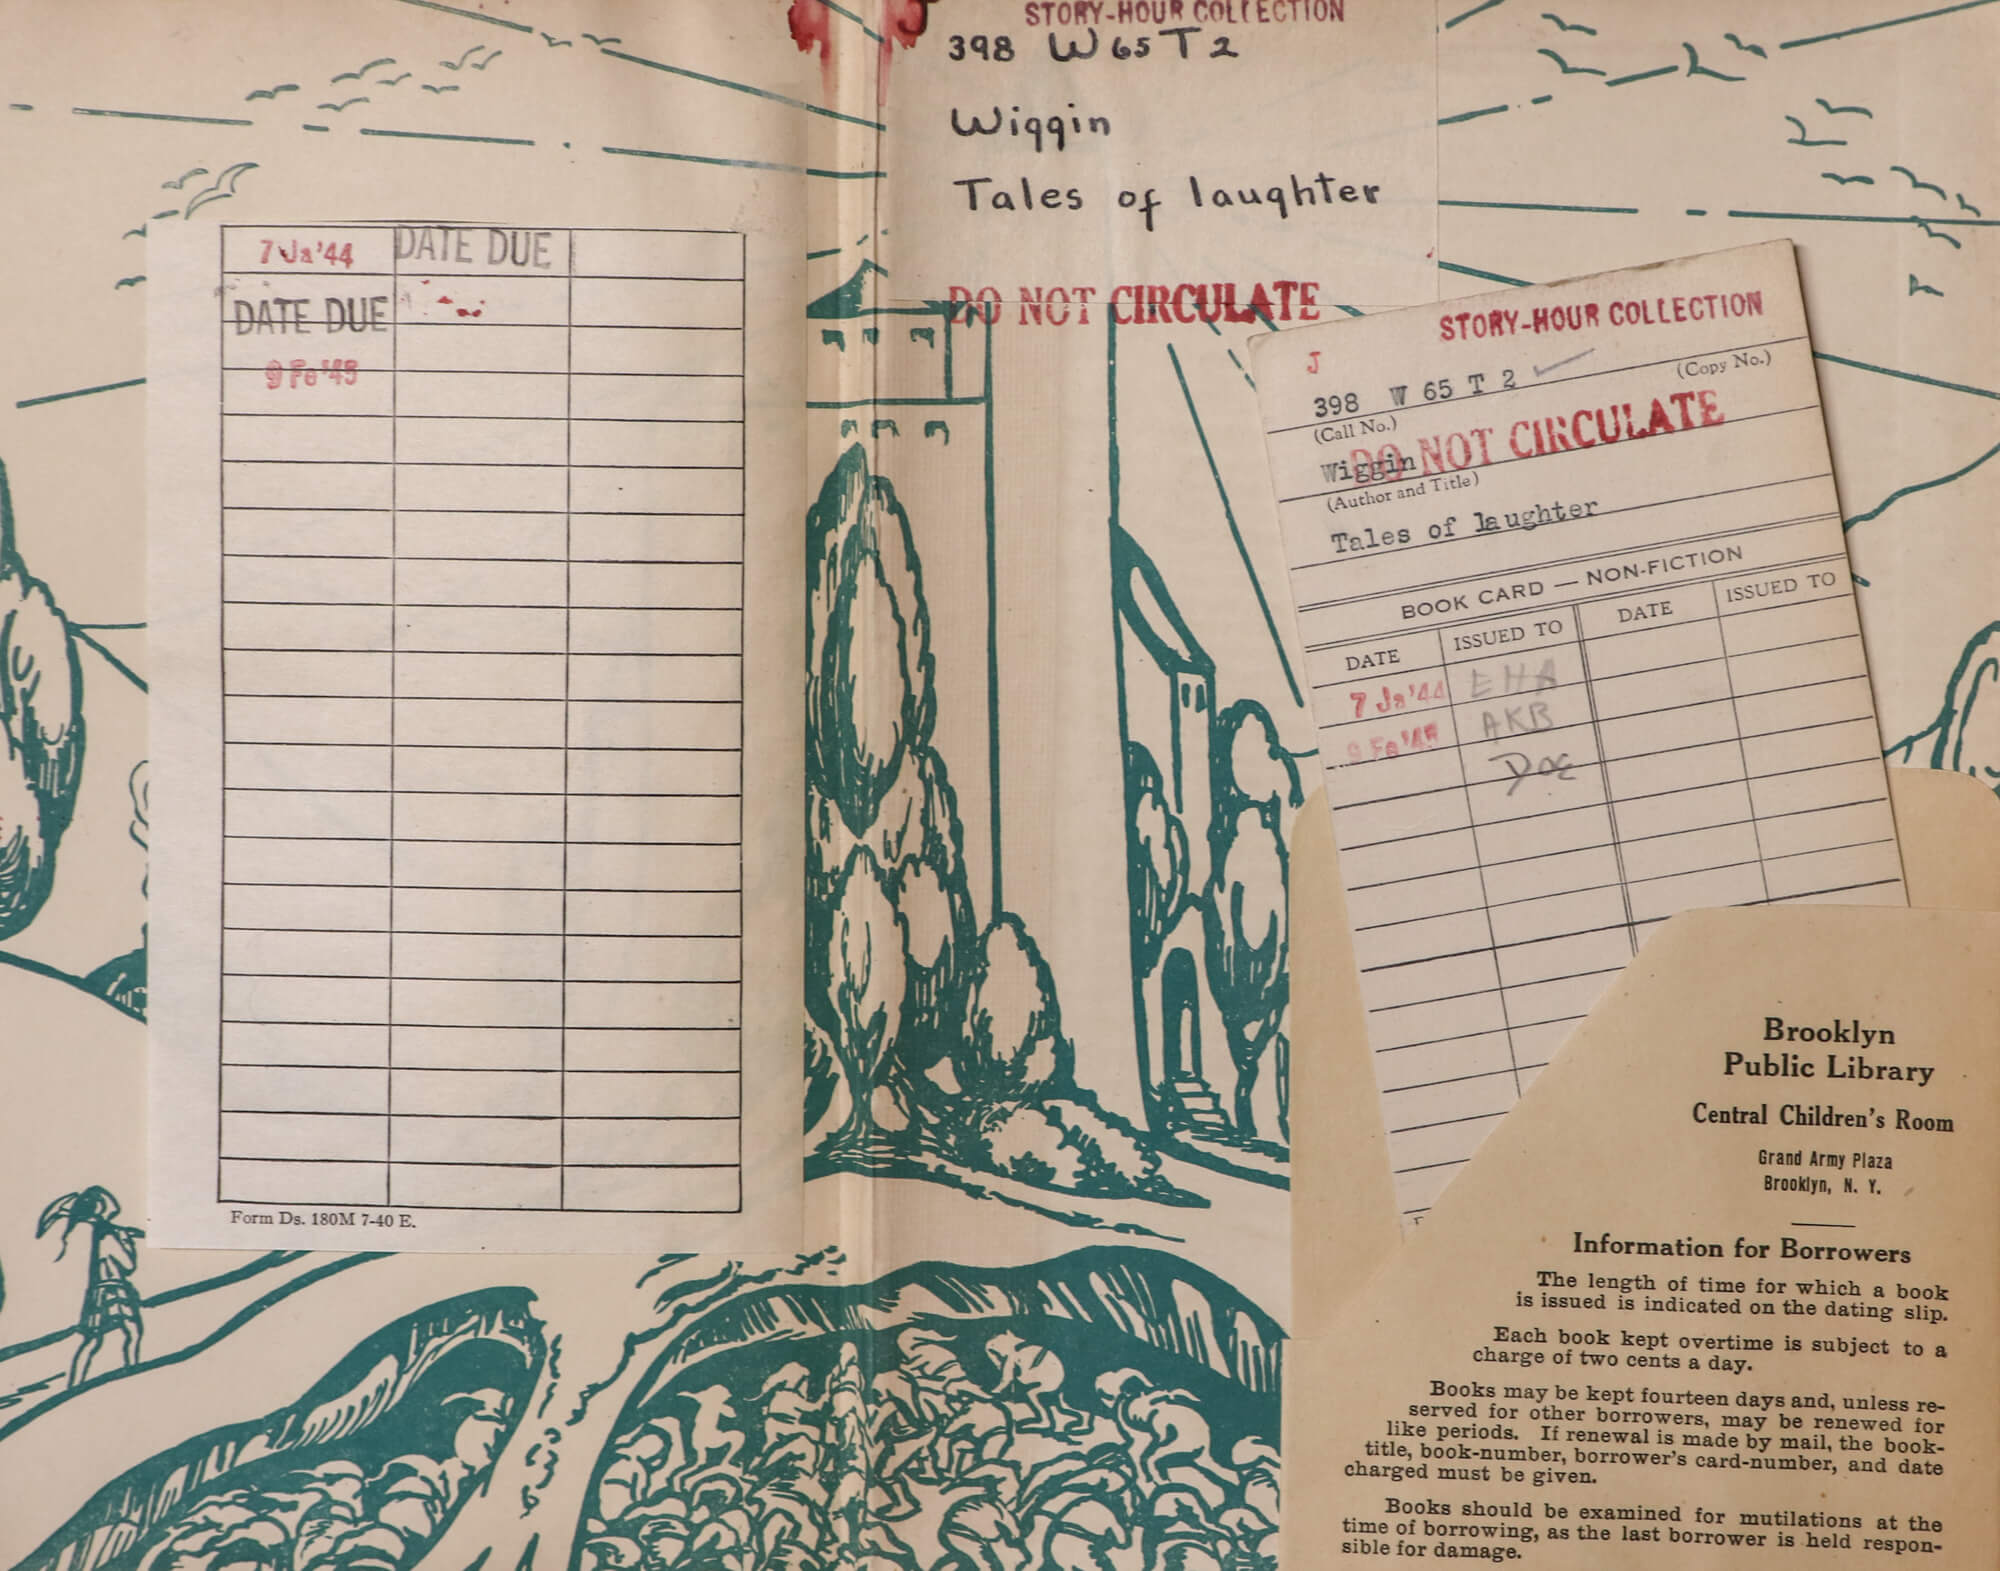 7 Ja '44 DATE DUE
DATE DUE
9 Fe '45
Form Ds. 180M 7-40 E.
J STORY-HOUR COLLECTION
398 W65T2
Wiggin
Tales of laughter
DO NOT CIRCULATE
STORY-HOUR COLLECTION
J
398 W 65 T 2
(Call No.) (Copy No.)
DO NOT CIRCULATE
Wiggin
(Author and Title)
Tales of laughter
BOOK CARD — NON-FICTION
DATE ISSUED TO DATE ISSUED TO
7 Ja '44 EHA
9 Fe '45 AKB
Brooklyn
Public Library
Central Children's Room
Grand Army Plaza
Brooklyn, N. Y.
Information for Borrowers
The length of time for which a book
is issued is indicated on the dating slip.
Each book kept overtime is subject to a
charge of two cents a day.
Books may be kept fourteen days and, unless re-
served for other borrowers, may be renewed for
like periods. If renewal is made by mail, the book-
title, book-number, borrower's card-number, and date
charged must be given.
Books should be examined for mutilations at the
time of borrowing, as the last borrower is held respon-
sible for damage.